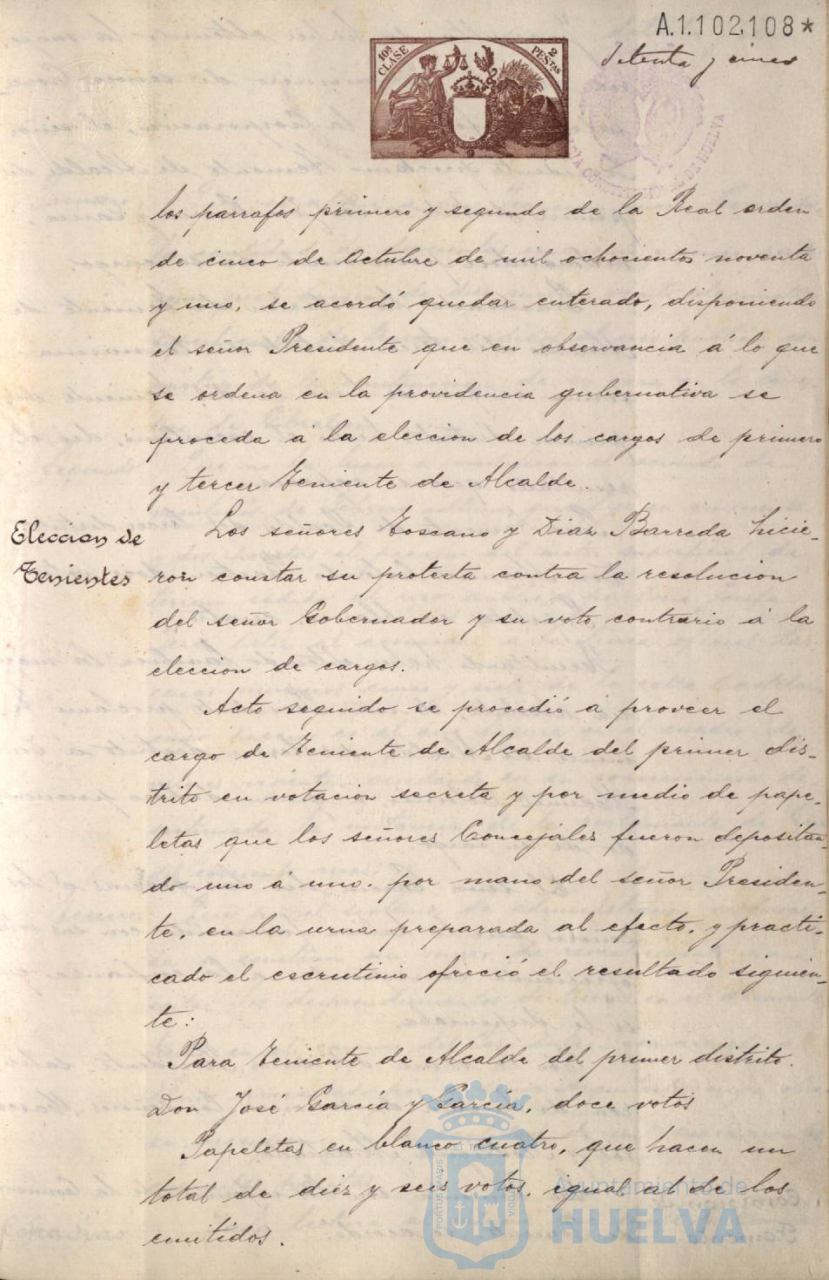 A.1.102,108*
Setenta y cinco
10ª CLASE
2 PESTAS
los párrafos primero y segundo de la Real orden
de cinco de Octubre de mil ochocientos noventa
y uno, se acordó quedar enterado, disponiendo
el señor Presidente que en observancia á lo que
se ordena en la providencia gubernativa se
proceda á la eleccion de los cargos de primero
y tercer Teniente de Alcalde.
Eleccion de
Tenientes
Los señores Toscano y Diaz Barreda hicie-
ron constar su protesta contra la resolucion
del señor Gobernador y su voto contrario á la
eleccion de cargos.
Acto seguido se procedió á proveer el
cargo de Teniente de Alcalde del primer dis-
trito en votacion secreta y por medio de pape-
letas que los señores Concejales fueron depositan-
do uno á uno, por mano del señor Presiden-
te, en la urna preparada al efecto, y practi-
cado el escrutinio ofreció el resultado siguien-
te:
Para Teniente de Alcalde del primer distrito.
Don José García y García, doce votos
Papeletas en blanco cuatro, que hacen un
total de diez y seis votos, igual al de los
emitidos.
Ayuntamiento de
HUELVA